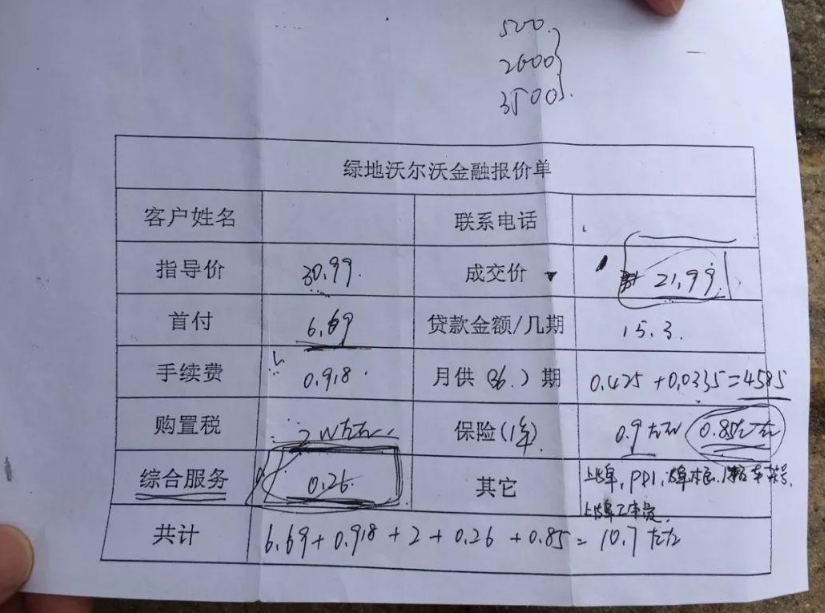 500
2600
3500
绿地沃尔沃金融报价单
客户姓名 联系电话
指导价 30.99 成交价 21.99
首付 6.69 贷款金额/几期 15.3
手续费 0.918 月供(36)期 0.425+0.0335=4585
购置税 2W左右 保险(1年) 0.9左右 0.85左右
综合服务 0.26 其它 上牌,PDI,
共计 6.69+0.918+2+0.26+0.85=10.7左右